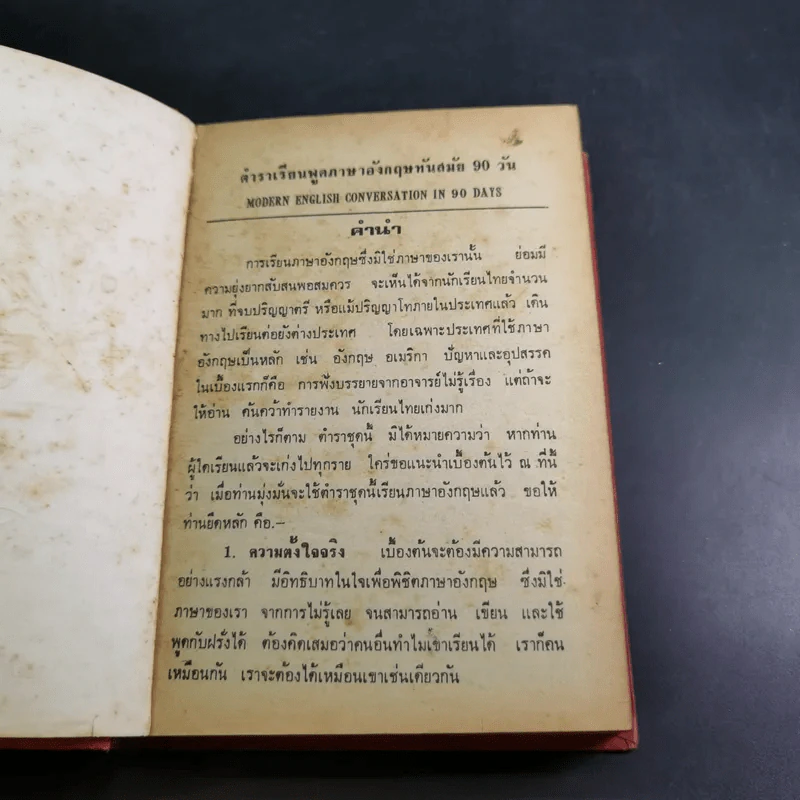 ตำราเรียนพูดภาษาอังกฤษทันสมัย 90 วัน
MODERN ENGLISH CONVERSATION IN 90 DAYS
คำนำ
การเรียนภาษาอังกฤษซึ่งมิใช่ภาษาของเรานั้น ย่อมมี
ความยุ่งยากสับสนพอสมควร จะเห็นได้จากนักเรียนไทยจำนวน
มาก ที่จบปริญญาตรี หรือแม้ปริญญาโทภายในประเทศแล้ว เดิน
ทางไปเรียนต่อยังต่างประเทศ โดยเฉพาะประเทศที่ใช้ภาษา
อังกฤษเป็นหลัก เช่น อังกฤษ อเมริกา ปัญหาและอุปสรรค
ในเบื้องแรกก็คือ การฟังบรรยายจากอาจารย์ไม่รู้เรื่อง แต่ถ้าจะ
ให้อ่าน ค้นคว้าทำรายงาน นักเรียนไทยเก่งมาก
อย่างไรก็ตาม ตำราชุดนี้ มิได้หมายความว่า หากท่าน
ผู้ใดเรียนแล้วจะเก่งไปทุกราย ใคร่ขอแนะนำเบื้องต้นไว้ ณ ที่นี้
ว่า เมื่อท่านมุ่งมั่นจะใช้ตำราชุดนี้เรียนภาษาอังกฤษแล้ว ขอให้
ท่านยึดหลัก คือ.—
1. ความตั้งใจจริง เบื้องต้นจะต้องมีความสามารถ
อย่างแรงกล้า มีอิทธิบาทในใจเพื่อพิชิตภาษาอังกฤษ ซึ่งมิใช่
ภาษาของเรา จากการไม่รู้เลย จนสามารถอ่าน เขียน และใช้
พูดกับฝรั่งได้ ต้องคิดเสมอว่าคนอื่นทำไมเขาเรียนได้ เราก็คน
เหมือนกัน เราจะต้องได้เหมือนเขาเช่นเดียวกัน